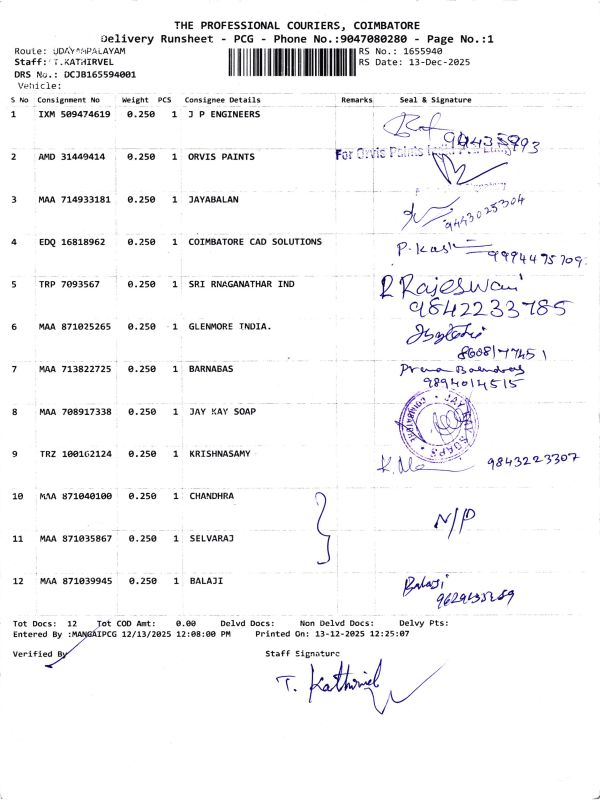 THE PROFESSIONAL COURIERS, COIMBATORE
Delivery Runsheet - PCG - Phone No.:9047080280 - Page No.:1
Route: UDAYAMPALAYAM RS No.: 1655940
Staff: T.KATHIRVEL RS Date: 13-Dec-2025
DRS No.: DCJB165594001
Vehicle:
S No Consignment No Weight PCS Consignee Details Remarks Seal & Signature
1 IXM 509474619 0.250 1 J P ENGINEERS
2 AMD 31449414 0.250 1 ORVIS PAINTS For Orvis Paints
3 MAA 714933181 0.250 1 JAYABALAN 9443025304
4 EDQ 16818962 0.250 1 COIMBATORE CAD SOLUTIONS P. Kash 9994495709
5 TRP 7093567 0.250 1 SRI RNAGANATHAR IND R Rajeswari
9842233785
6 MAA 871025265 0.250 1 GLENMORE INDIA.
7 MAA 713822725 0.250 1 BARNABAS
9894014515
8 MAA 708917338 0.250 1 JAY KAY SOAP JAY KAY SOAPS
9 TRZ 100162124 0.250 1 KRISHNASAMY 9843223307
10 MAA 871040100 0.250 1 CHANDHRA N/P
11 MAA 871035867 0.250 1 SELVARAJ
12 MAA 871039945 0.250 1 BALAJI Balaji
Tot Docs: 12 Tot COD Amt: 0.00 Delvd Docs: Non Delvd Docs: Delvy Pts:
Entered By :MANGAIPCG 12/13/2025 12:08:00 PM Printed On: 13-12-2025 12:25:07
Verified By Staff Signature
T. Kathirvel